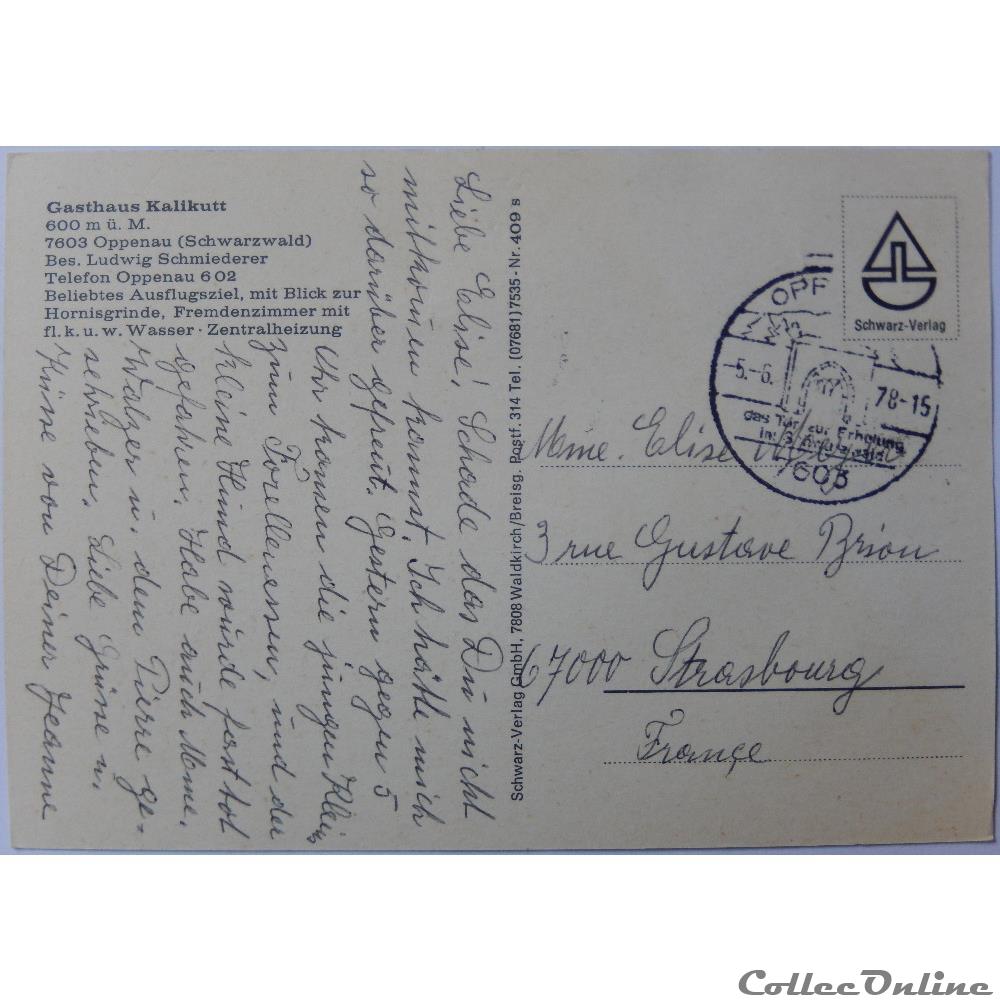 Gasthaus Kalikutt
600 m ü. M.
7603 Oppenau (Schwarzwald)
Bes. Ludwig Schmiederer
Telefon Oppenau 6 02
Beliebtes Ausflugsziel, mit Blick zur
Hornisgrinde, Fremdenzimmer mit
fl. k. u. w. Wasser · Zentralheizung
Liebe Elise! Schade das Du nicht
mitkouen konnst. Ich hätte mich
so darüber gefreut. Gestern gegen 5
Uhr kamen die jungen Klein
zum Forellenessen, und der
kleine Hund wurde fast tot
gefahren. Habe auch Mme.
Walzer u. dem Pierre ge-
schrieben. Liebe Grüsse u.
Küsse von Deiner Jeanne
Schwarz-Verlag GmbH, 7808 Waldkirch/Breisg. Postf. 314 Tel. (07681) 7535 - Nr. 409 s
Schwarz-Verlag
OPP
5.-6. 78-15
das Tor zur Erholung
im Schwarzwald
7603
Mme. Elise
3 rue Gustave Brion
67000 Strasbourg
France
CollecOnline